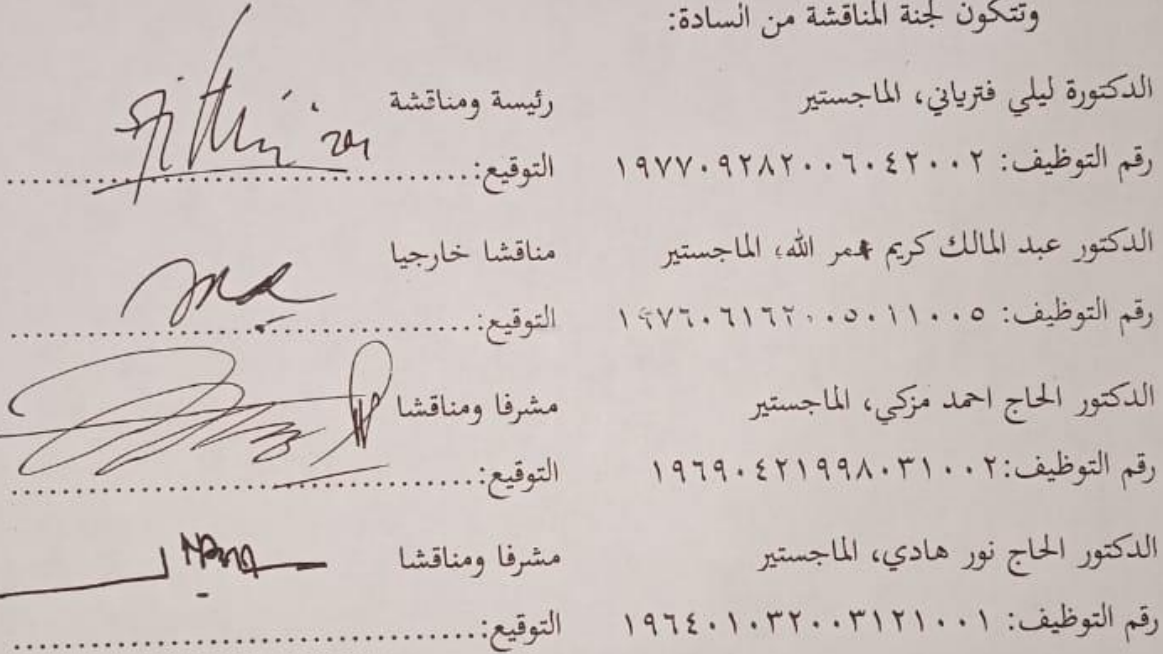 وتتكون لجنة المناقشة من السادة:
الدكتورة ليلي فترياني، الماجستير رئيسة ومناقشة
رقم التوظيف: ١٩٧٧٠٩٢٨٢٠٠٦٠٤٢٠٠٢ التوقيع:........................................
الدكتور عبد المالك كريم الله، الماجستير مناقشا خارجيا
رقم التوظيف: ١٩٧٦٠٦١٦٢٠٠٥٠١١٠٠٥ التوقيع:........................................
الدكتور الحاج احمد مزكي، الماجستير مشرفا ومناقشا
رقم التوظيف:١٩٦٩٠٤٢١٩٩٨٠٣١٠٠٢ التوقيع:........................................
الدكتور الحاج نور هادي، الماجستير مشرفا ومناقشا
رقم التوظيف: ١٩٦٤٠١٠٣٢٠٠٣١٢١٠٠١ التوقيع:........................................